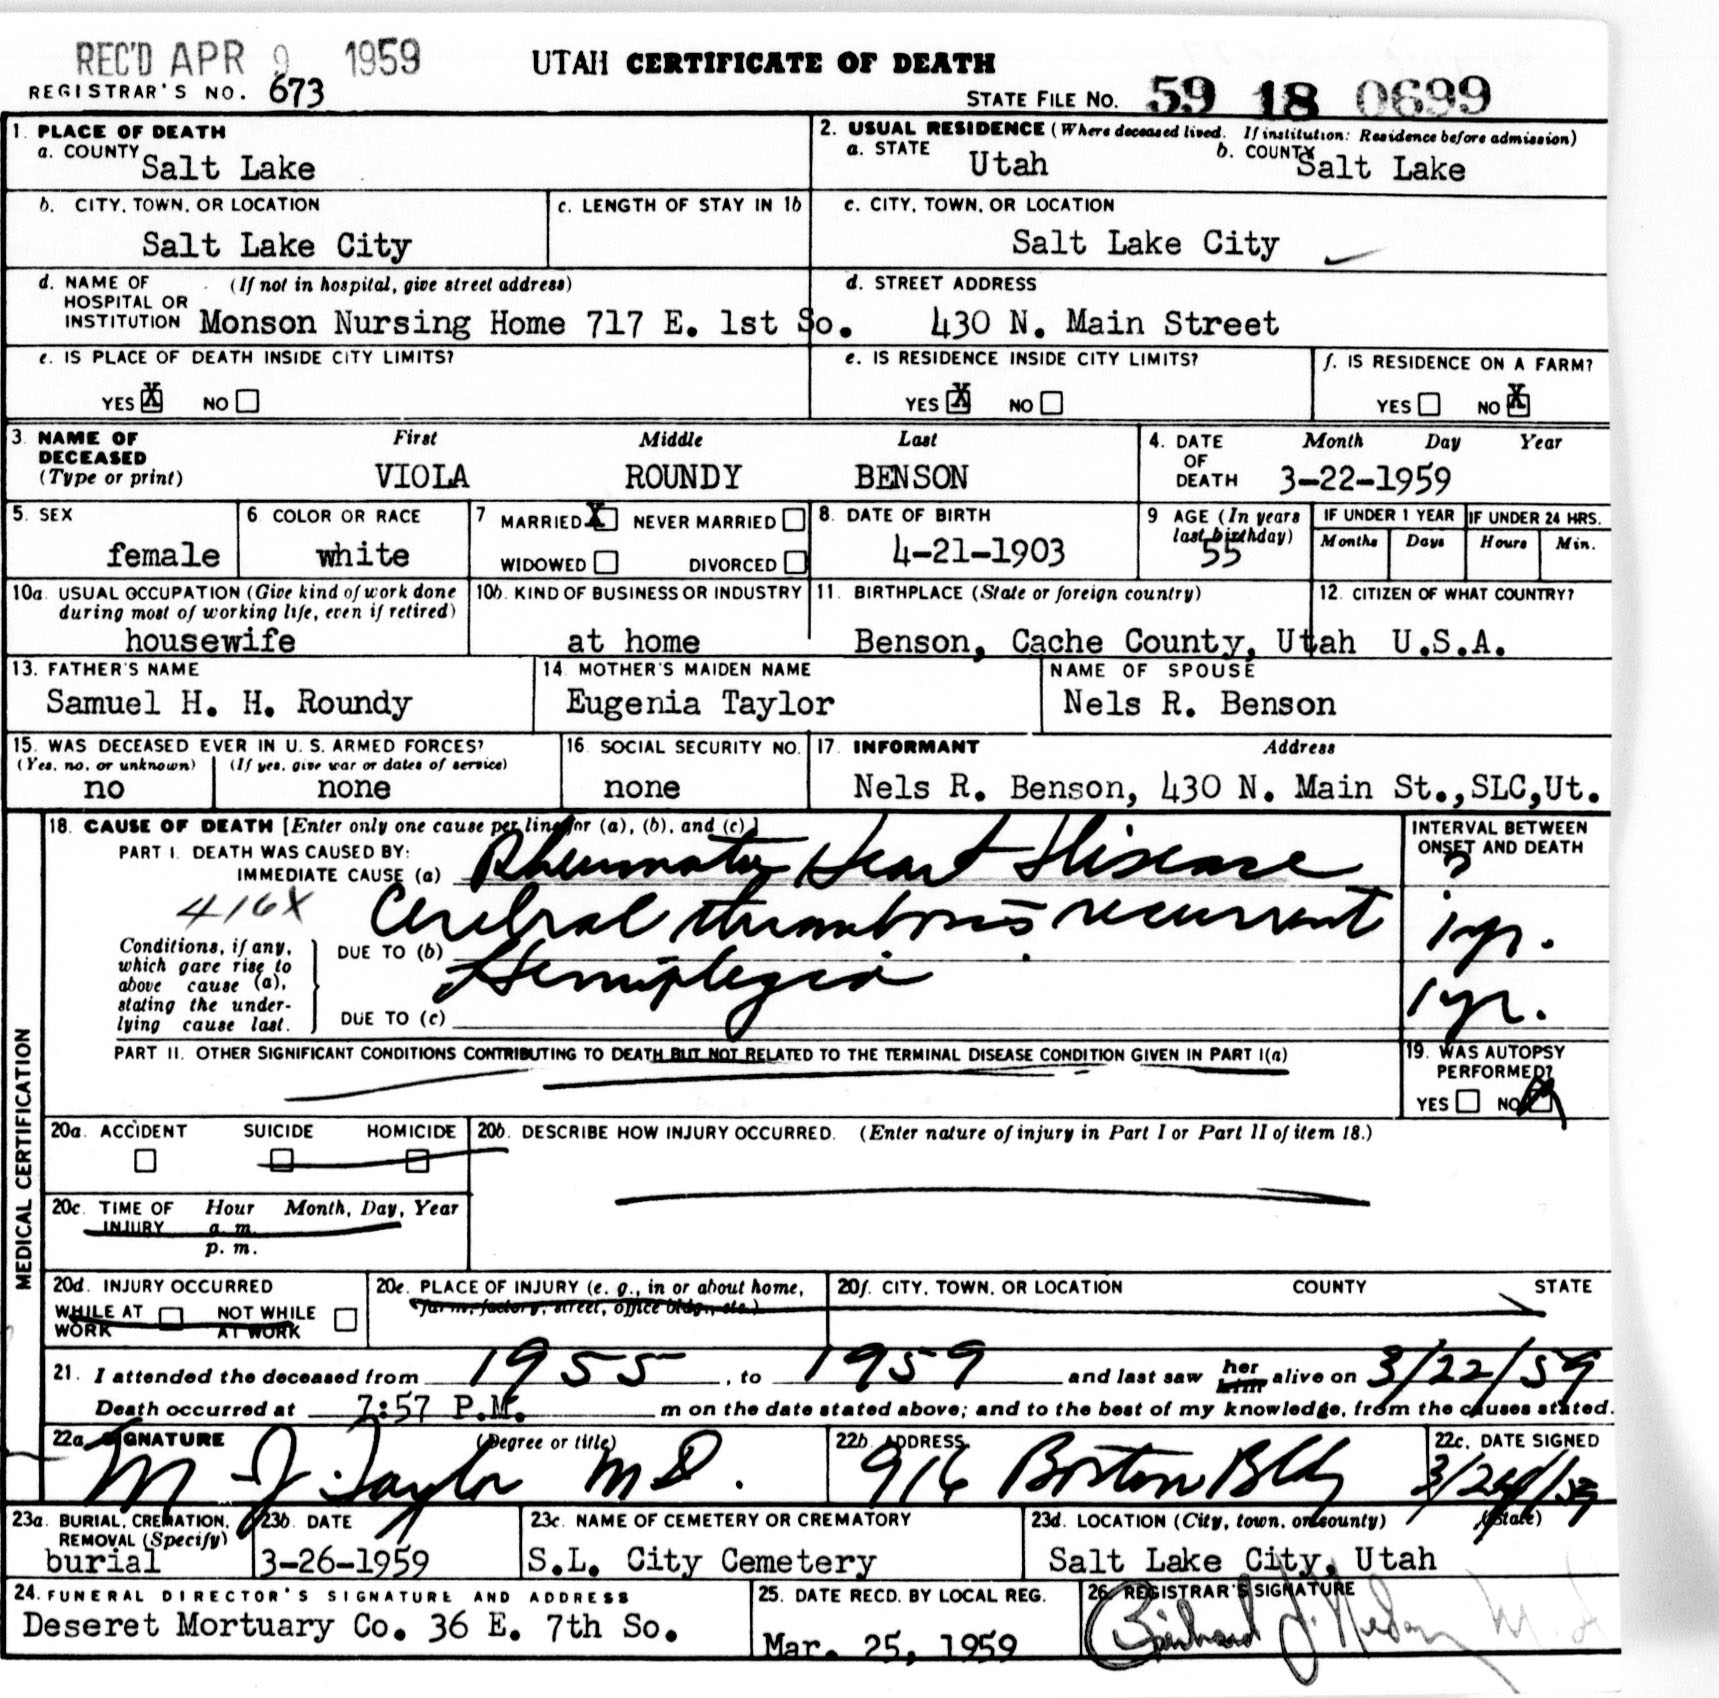 REC'D APR 9 1959
UTAH CERTIFICATE OF DEATH
REGISTRAR'S NO. 673
STATE FILE NO. 59 18 0699
1. PLACE OF DEATH
a. COUNTY Salt Lake
2. USUAL RESIDENCE (Where deceased lived. If institution: Residence before admission)
a. STATE Utah b. COUNTY Salt Lake
b. CITY, TOWN, OR LOCATION
Salt Lake City
c. LENGTH OF STAY IN 1b
c. CITY, TOWN, OR LOCATION
Salt Lake City
d. NAME OF HOSPITAL OR INSTITUTION (If not in hospital, give street address)
Monson Nursing Home 717 E. 1st So.
d. STREET ADDRESS
430 N. Main Street
e. IS PLACE OF DEATH INSIDE CITY LIMITS?
YES X NO
e. IS RESIDENCE INSIDE CITY LIMITS?
YES X NO
f. IS RESIDENCE ON A FARM?
YES NO X
3. NAME OF DECEASED (Type or print)
First Middle Last
VIOLA ROUNDY BENSON
4. DATE OF DEATH Month Day Year
3-22-1959
5. SEX
female
6. COLOR OR RACE
white
7 MARRIED X NEVER MARRIED
WIDOWED DIVORCED
8. DATE OF BIRTH
4-21-1903
9 AGE (In years last birthday)
55
IF UNDER 1 YEAR
Months Days
IF UNDER 24 HRS.
Hours Min.
10a. USUAL OCCUPATION (Give kind of work done during most of working life, even if retired)
housewife
10b. KIND OF BUSINESS OR INDUSTRY
at home
11. BIRTHPLACE (State or foreign country)
Benson, Cache County, Utah
12. CITIZEN OF WHAT COUNTRY?
U.S.A.
13. FATHER'S NAME
Samuel H. H. Roundy
14 MOTHER'S MAIDEN NAME
Eugenia Taylor
NAME OF SPOUSE
Nels R. Benson
15. WAS DECEASED EVER IN U. S. ARMED FORCES?
(Yes, no, or unknown) (If yes, give war or dates of service)
no none
16. SOCIAL SECURITY NO.
none
17. INFORMANT Address
Nels R. Benson, 430 N. Main St.,SLC,Ut.
MEDICAL CERTIFICATION
18. CAUSE OF DEATH [Enter only one cause per line for (a), (b), and (c).]
INTERVAL BETWEEN ONSET AND DEATH
PART I. DEATH WAS CAUSED BY:
IMMEDIATE CAUSE (a) Rheumatic Heart Disease ?
416X
Conditions, if any, which gave rise to above cause (a), stating the underlying cause last.
DUE TO (b) Cerebral thrombosis recurrent 1 yr.
DUE TO (c) Hemiplegia 1 yr.
PART II. OTHER SIGNIFICANT CONDITIONS CONTRIBUTING TO DEATH BUT NOT RELATED TO THE TERMINAL DISEASE CONDITION GIVEN IN PART I(a)
19. WAS AUTOPSY PERFORMED?
YES NO
20a. ACCIDENT SUICIDE HOMICIDE
20b. DESCRIBE HOW INJURY OCCURRED. (Enter nature of injury in Part I or Part II of item 18.)
20c. TIME OF INJURY Hour Month, Day, Year
a. m.
p. m.
20d. INJURY OCCURRED
WHILE AT WORK NOT WHILE AT WORK
20e. PLACE OF INJURY (e. g., in or about home, farm, factory, street, office bldg., etc.)
20f. CITY, TOWN, OR LOCATION COUNTY STATE
21. I attended the deceased from 1955, to 1959 and last saw her him alive on 3/22/59
Death occurred at 7:57 P.M. m on the date stated above; and to the best of my knowledge, from the causes stated.
22a. SIGNATURE (Degree or title)
M J Taylor M D.
22b. ADDRESS
916 Boston Bldg
22c. DATE SIGNED
3/24/59
23a. BURIAL, CREMATION, REMOVAL (Specify)
burial
23b. DATE
3-26-1959
23c. NAME OF CEMETERY OR CREMATORY
S.L. City Cemetery
23d. LOCATION (City, town, or county) (State)
Salt Lake City, Utah
24. FUNERAL DIRECTOR'S SIGNATURE AND ADDRESS
Deseret Mortuary Co. 36 E. 7th So.
25. DATE RECD. BY LOCAL REG.
Mar. 25, 1959
26. REGISTRAR'S SIGNATURE